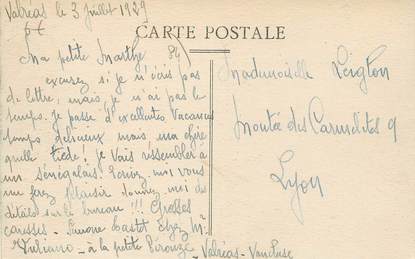 Valréas le 3 juillet 1929
CARTE POSTALE
Ma petite Marthe
excusez si je n'écris pas
de lettre, mais je n'ai pas le
temps. Je passe d'excellentes Vacances
temps délicieux mais, ma chère
quelle tiède! je Vais ressembler à
un Sénégalais! Ecrivez-moi vous
me ferez plaisir donnez-moi des
détails sur le bureau!!! Grosses
caresses - Simone Castet chez Mr
- à la petite Pérouze - Valréas - Vaucluse
Mademoiselle
Montée des Carmélites 9
Lyon